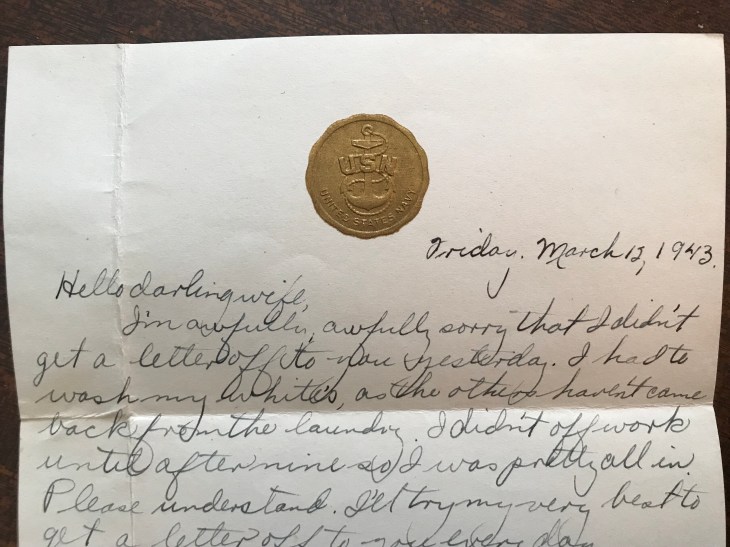 USN
UNITED STATES NAVY
Friday. March 12, 1943.
Hello darling wife,
I'm awfully, awfully sorry that I didn't
get a letter off to you yesterday. I had to
wash my white's, as the others haven't came
back from the laundry. I didn't off work
until after nine so I was pretty all in.
Please understand. I'll try my very best to
get a letter off to you every day